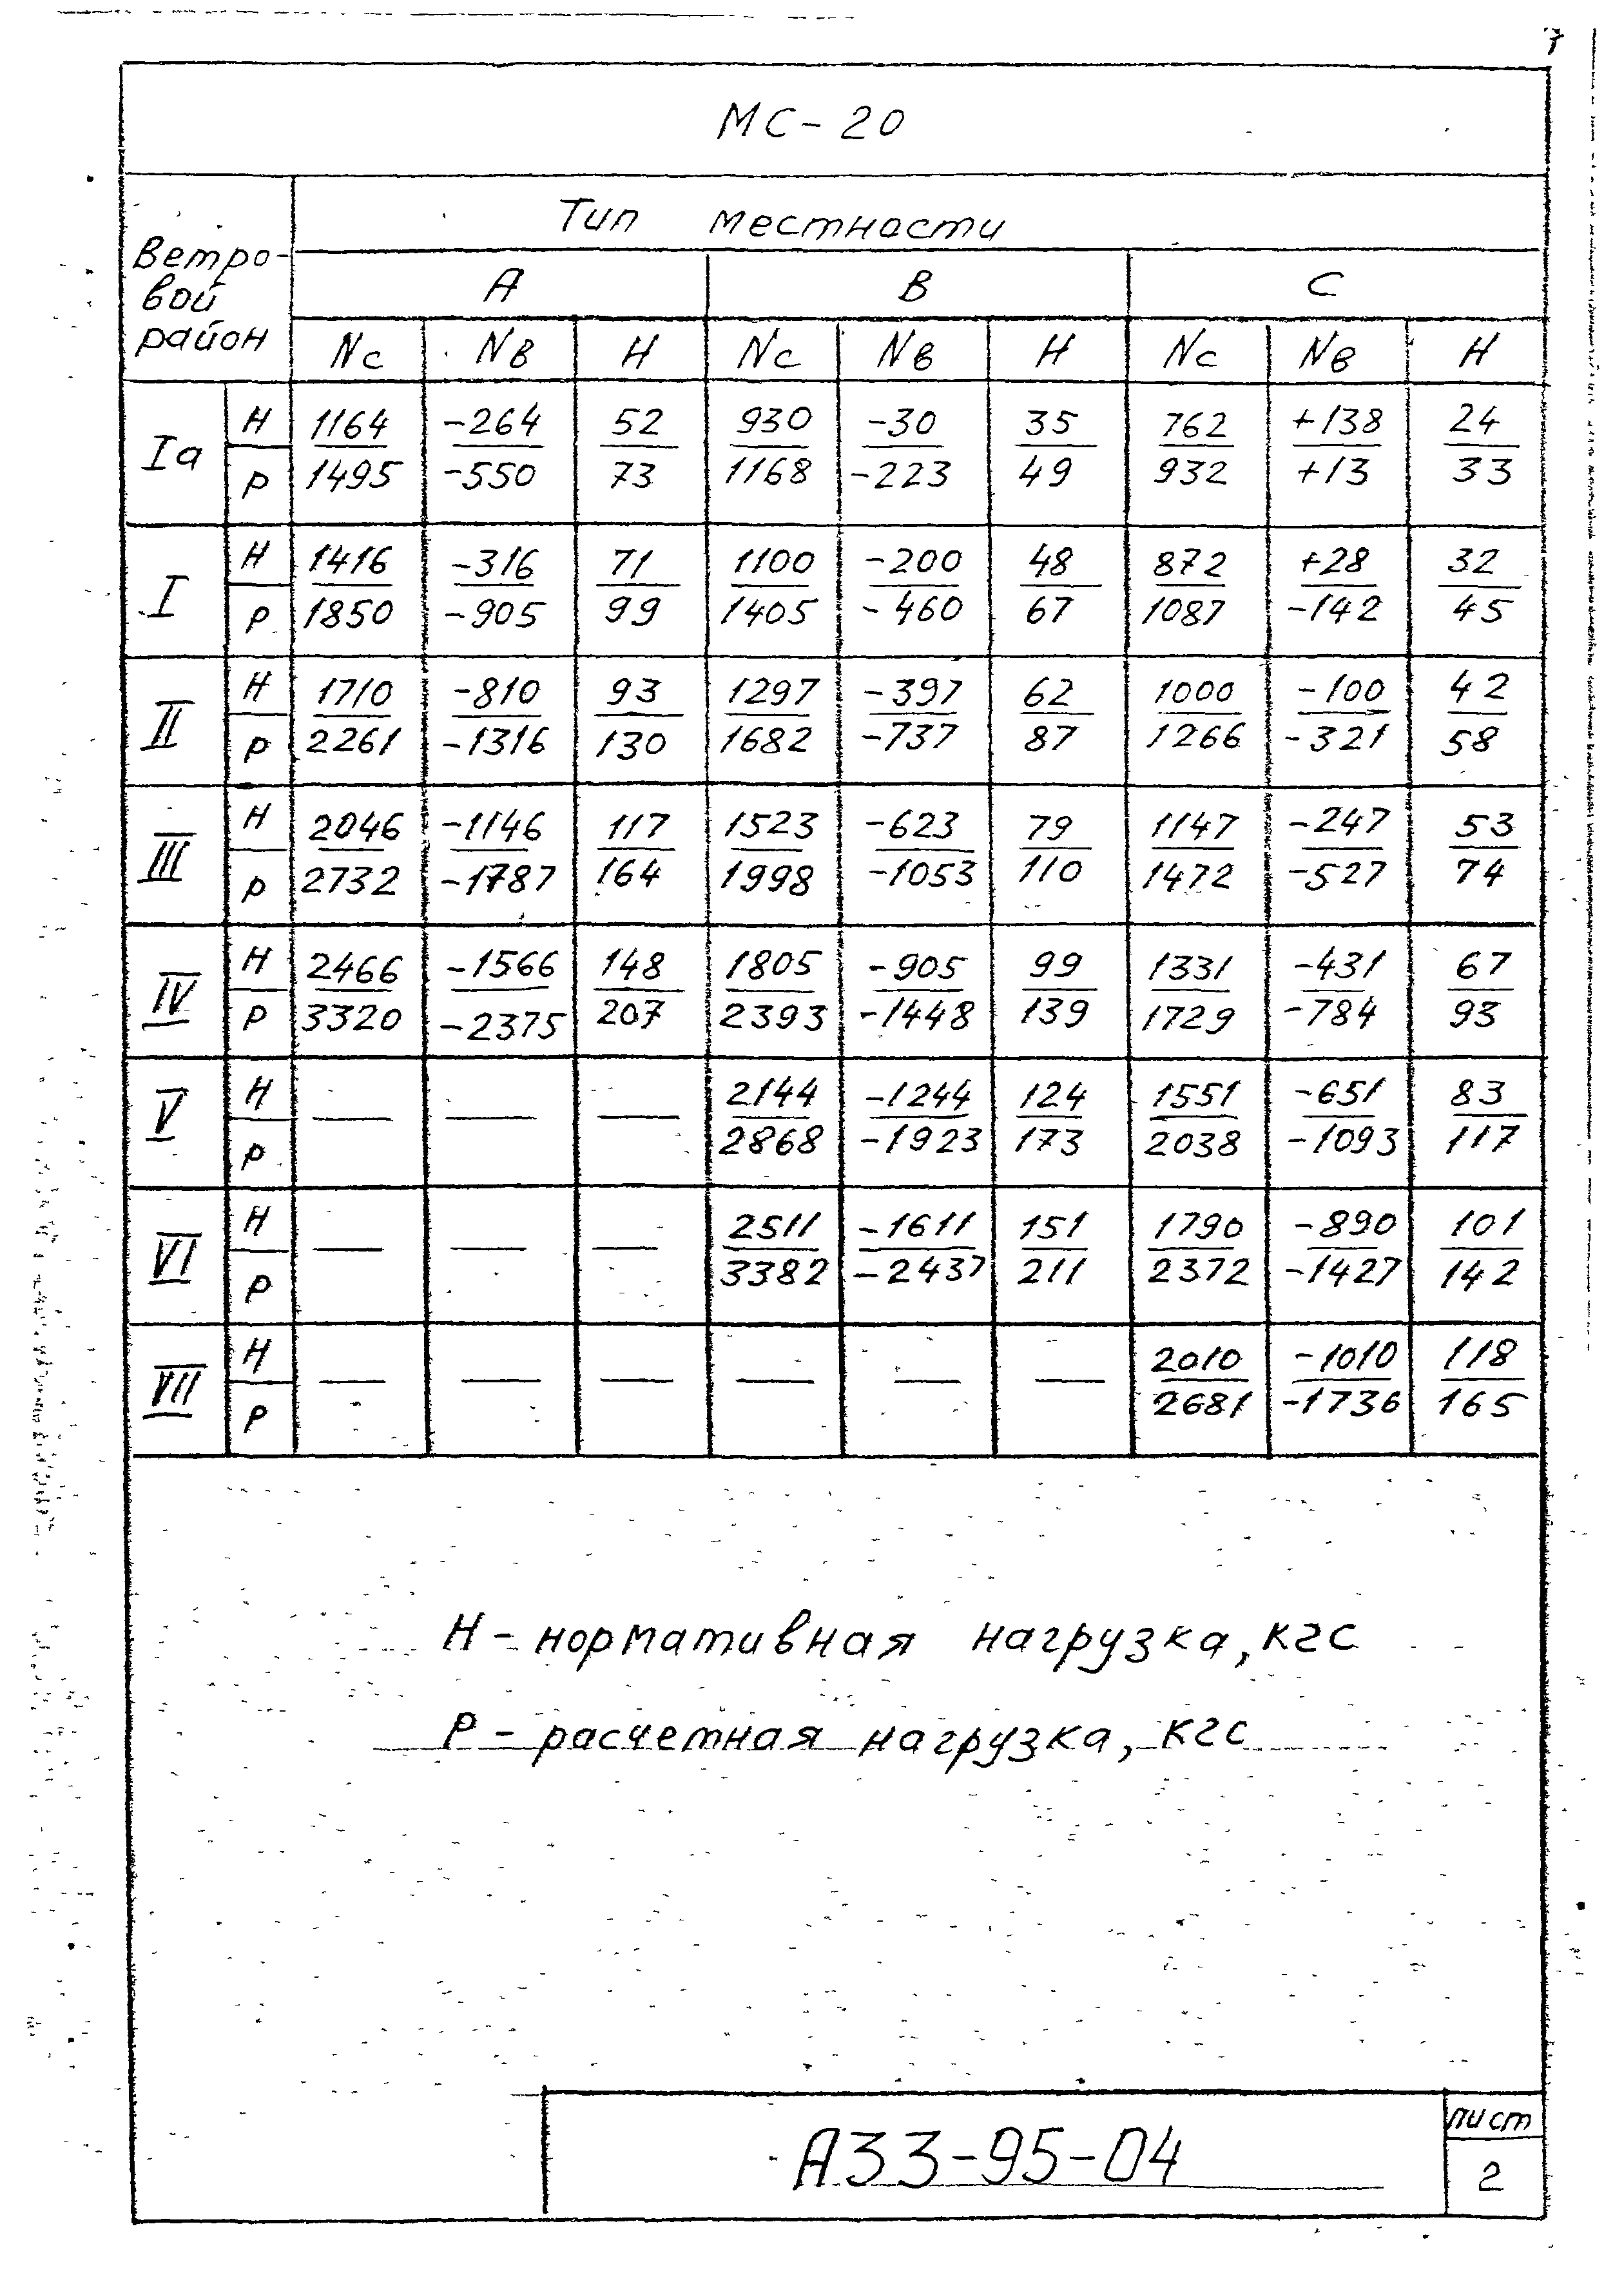 7
МС-20
Ветро-
вой
район
Тип местности
А В С
Nс Nв Н Nс Nв Н Nс Nв Н
Iа Н 1164 -264 52 930 -30 35 762 +138 24
Р 1495 -550 73 1168 -223 49 932 +13 33
I Н 1416 -316 71 1100 -200 48 872 +28 32
Р 1850 -905 99 1405 -460 67 1087 -142 45
II Н 1710 -810 93 1297 -397 62 1000 -100 42
Р 2261 -1316 130 1682 -737 87 1266 -321 58
III Н 2046 -1146 117 1523 -623 79 1147 -247 53
Р 2732 -1787 164 1998 -1053 110 1472 -527 74
IV Н 2466 -1566 148 1805 -905 99 1331 -431 67
Р 3320 -2375 207 2393 -1448 139 1729 -784 93
V Н — — — 2144 -1244 124 1551 -651 83
Р 2868 -1923 173 2038 -1093 117
VI Н — — — 2511 -1611 151 1790 -890 101
Р 3382 -2437 211 2372 -1427 142
VII Н — — — — — — 2010 -1010 118
Р 2681 -1736 165
Н - нормативная нагрузка, кгс
Р - расчетная нагрузка, кгс
А33-95-04
лист
2